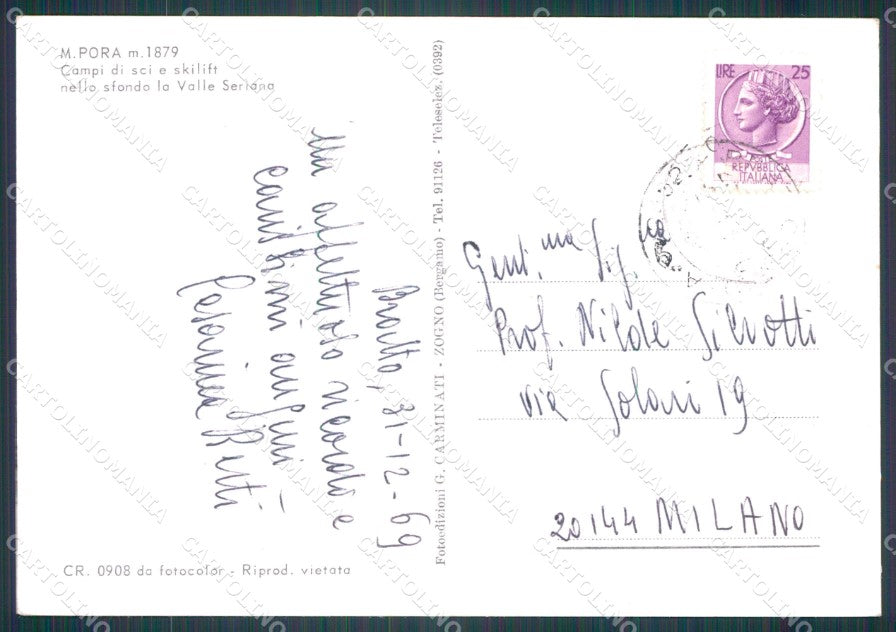 M. PORA m. 1879
Campi di sci e skilift
nello sfondo la Valle Seriana
Bratto, 31-12-69
un affettuoso ricordo e
carissimi auguri
Fotoedizioni G. CARMINATI - ZOGNO (Bergamo) - Tel. 91126 - Teleselez. (0392)
LIRE 25
REPVBBLICA
ITALIANA
Gent.ma Sig.ra
Prof. Nilde
via Solari 19
20144 MILANO
CR. 0908 da fotocolor - Riprod. vietata
CARTOLINOMANIA